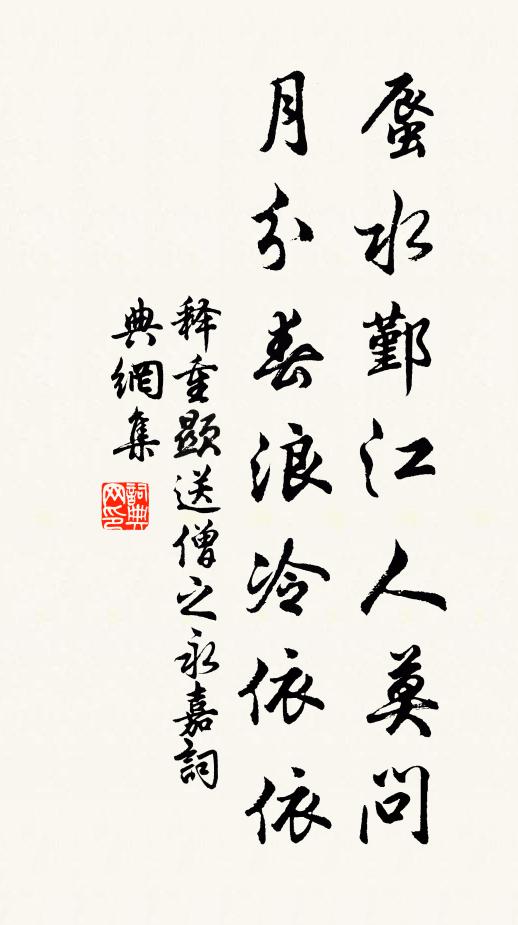 蜃水鄞江人莫问
月分春浪冷依依
释重显送僧之永嘉詞
典網集
詞典网印